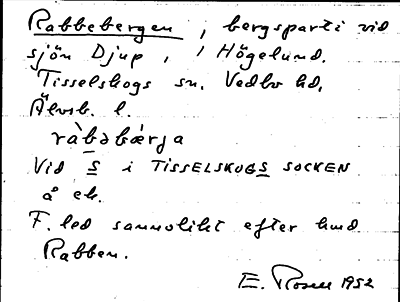 Rabbebergen, bergsparti vid
sjön Djup, i Högelund.
Tisselskogs sn. Vedbo hd.
Älvsb. l.
ràbəbæ̀rja
Vid S i TISSELSKOGS SOCKEN
å ek.
F. led sannolikt efter hmd
Rabben.
E. Rosell 1952